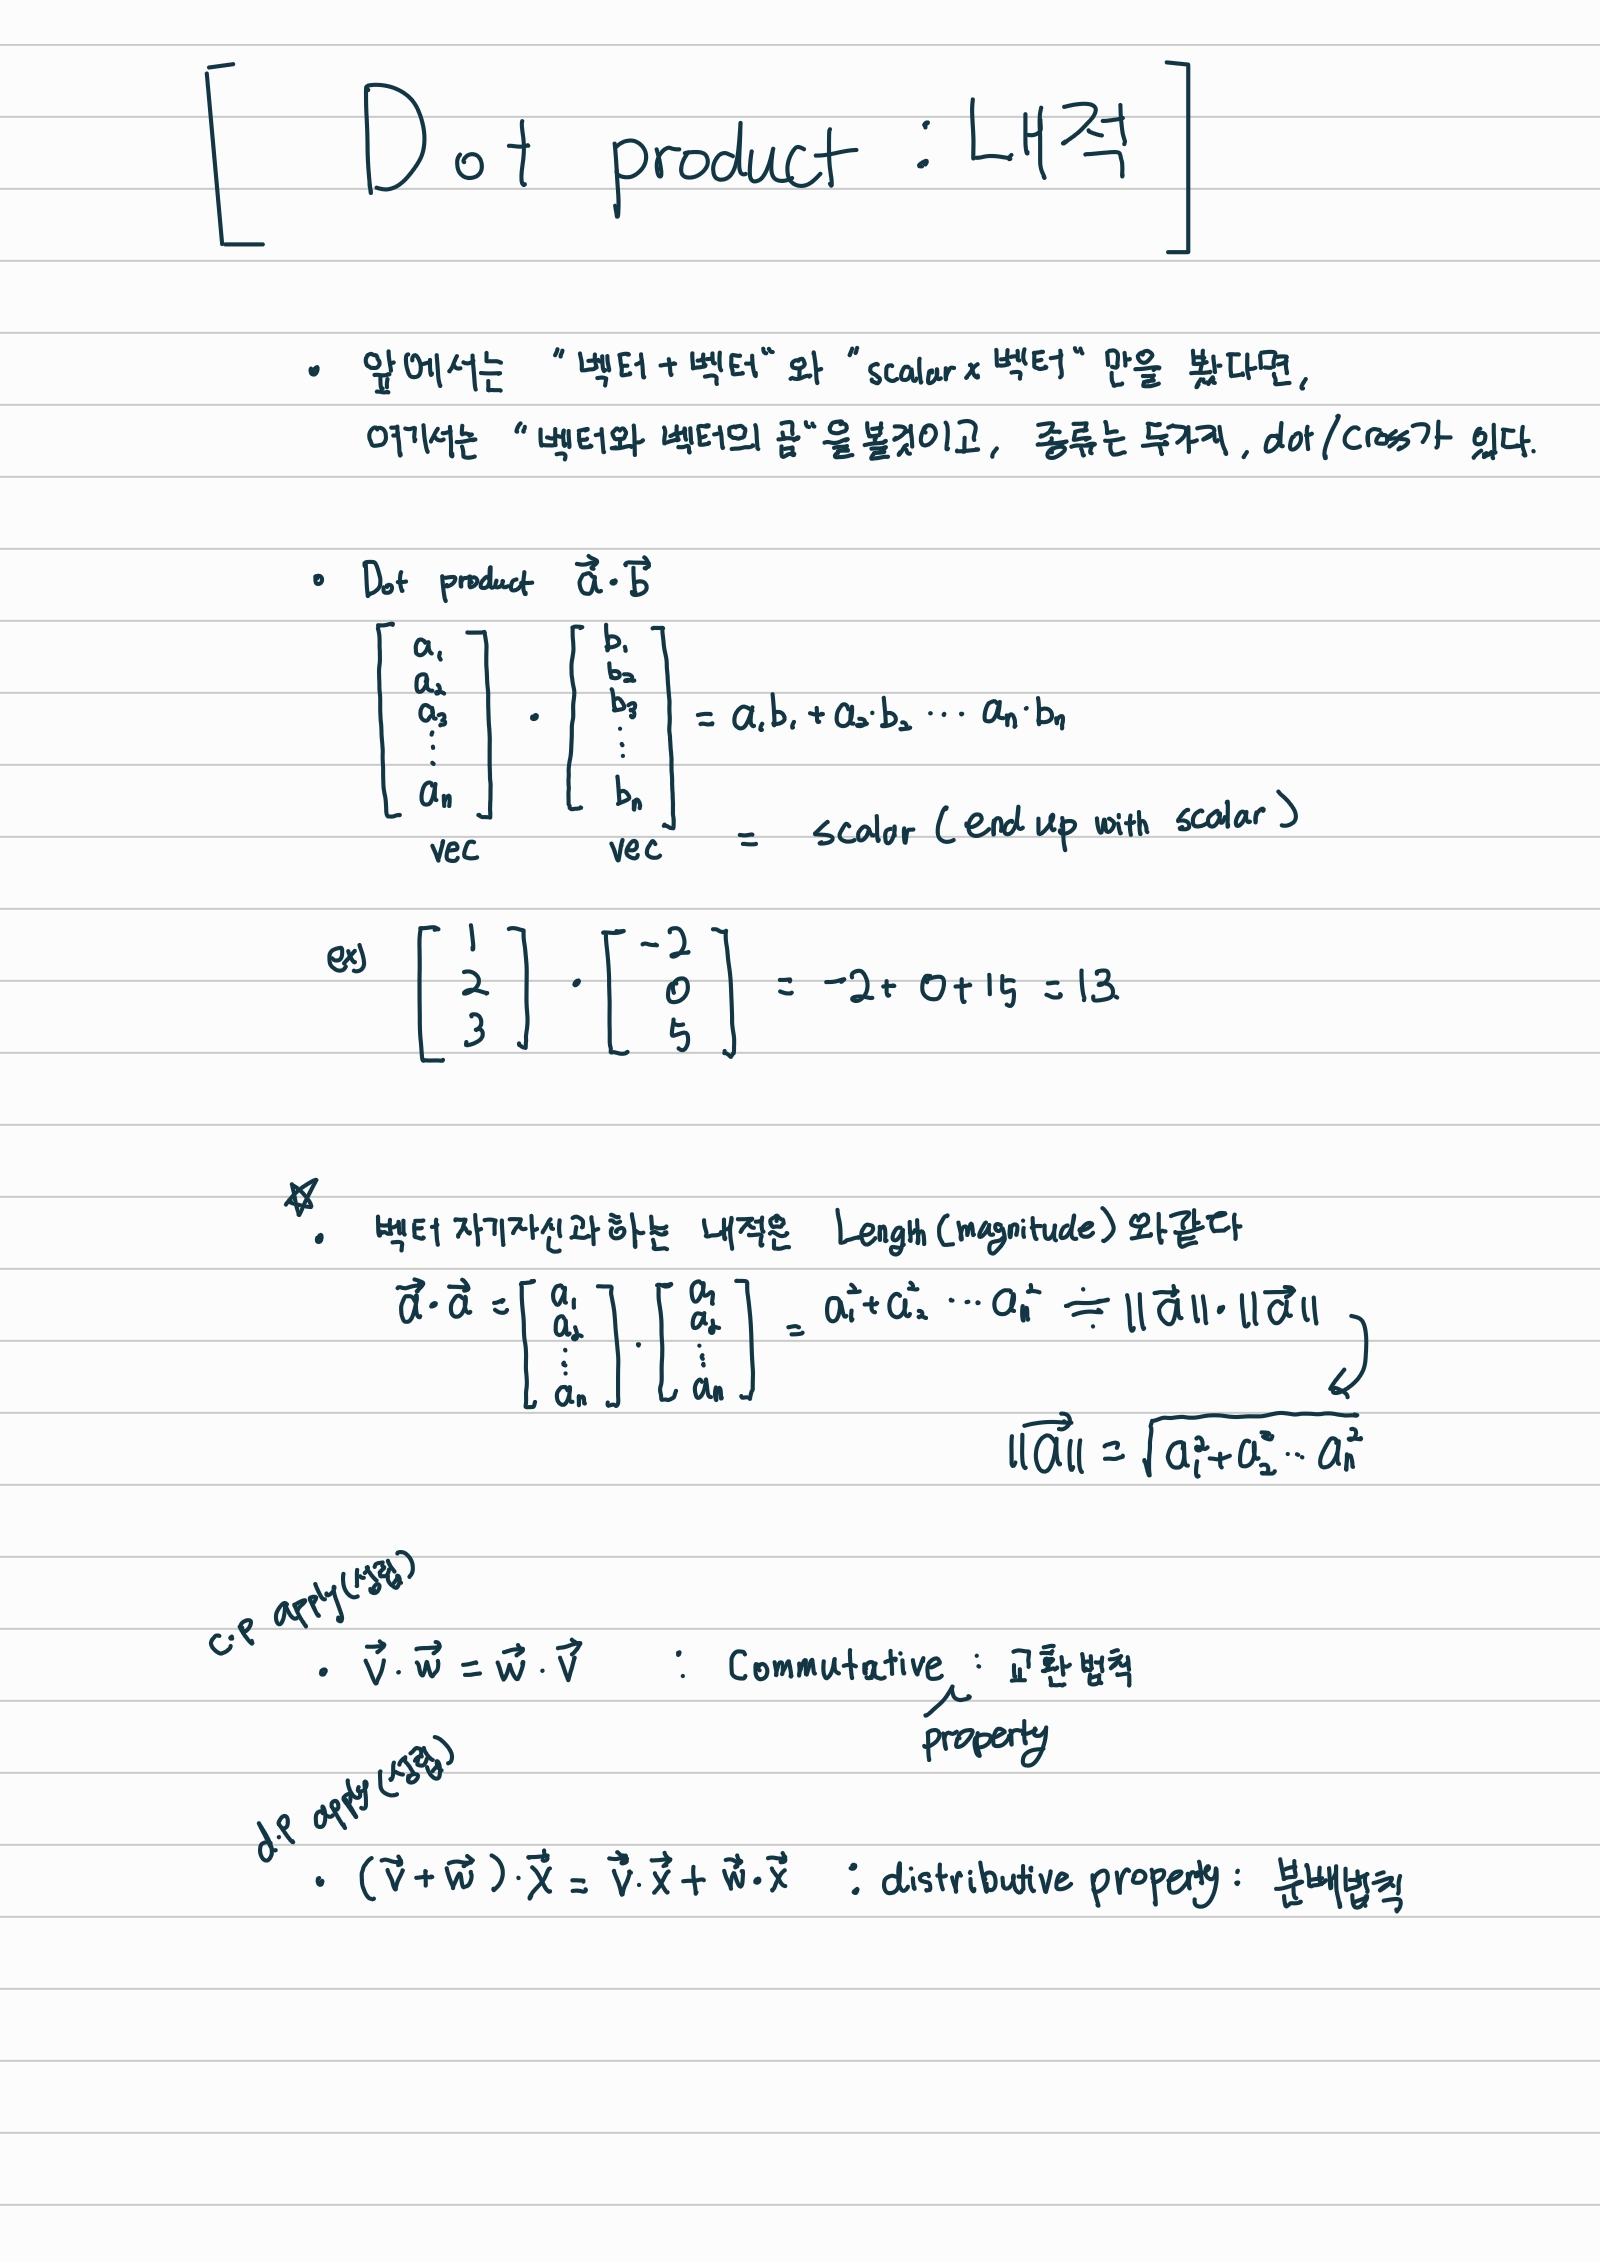 [ Dot product : 내적 ]
• 앞에서는 "벡터 + 벡터" 와 "scalar x 벡터" 만을 봤다면,
여기서는 "벡터와 벡터의 곱"을 볼것이고, 종류는 두가지, dot/cross가 있다.
• Dot product a⃗·b⃗
[a₁ a₂ a₃ ⋮ aₙ] · [b₁ b₂ b₃ ⋮ bₙ] = a₁b₁ + a₂·b₂ ··· aₙ·bₙ
vec vec = scalar (end up with scalar)
ex) [1 2 3] · [-2 0 5] = -2 + 0 + 15 = 13
☆
• 벡터 자기자신과하는 내적은 Lengh(magnitude)와같다
a⃗·a⃗ = [a₁ a₂ ⋮ aₙ] · [a₁ a₂ ⋮ aₙ] = a₁²+a₂² ··· aₙ² ≑ ||a⃗||·||a⃗||
||a⃗|| = √(a₁²+a₂²··aₙ²)
c.p apply(성립)
• v⃗·w⃗ = w⃗·v⃗ : Commutative : 교환법칙
property
d.p apply(성립)
• (v⃗+w⃗)·x⃗ = v⃗·x⃗ + w⃗·x⃗ : distributive property : 분배법칙